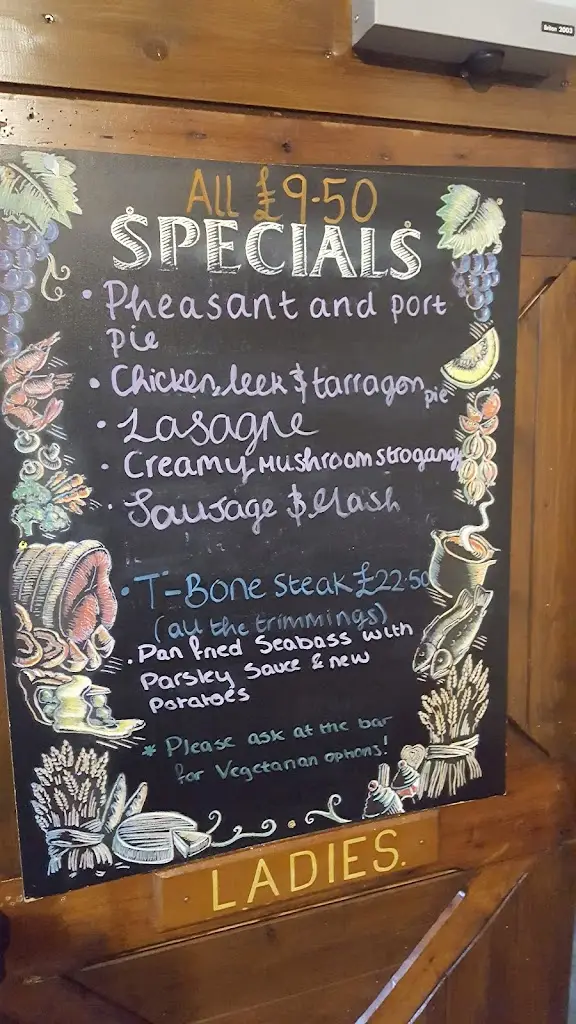 Briton 2003
All £9.50
SPECIALS
• Pheasant and port
pie
• Chicken, leek & tarragon pie
• Lasagne
• Creamy Mushroom stroganoff
• Sausage & Mash
• T-Bone Steak £22.50
(all the trimmings)
• Pan fried Seabass with
Parsley Sauce & new
Potatoes
* Please ask at the bar
for Vegetarian options!
LADIES.